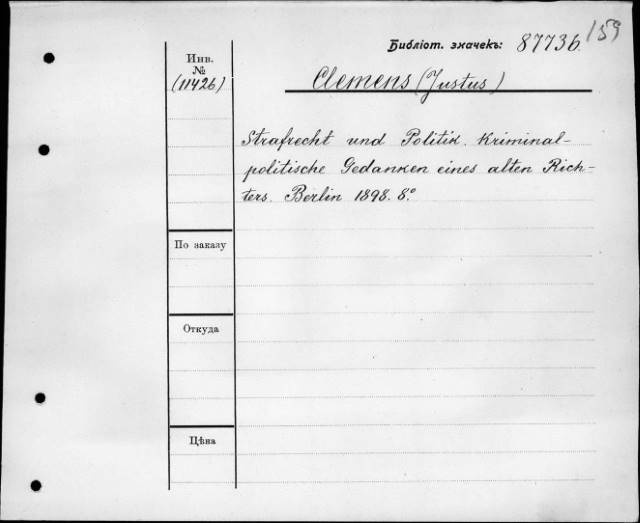 Библіот. значекъ: 87736 159
Инв.
№
(11426)
Clemens (Justus)
Strafrecht und Politik. Kriminal-
politische Gedanken eines alten Rich-
ters. Berlin 1898. 8°.
По заказу
Откуда
Цѣна